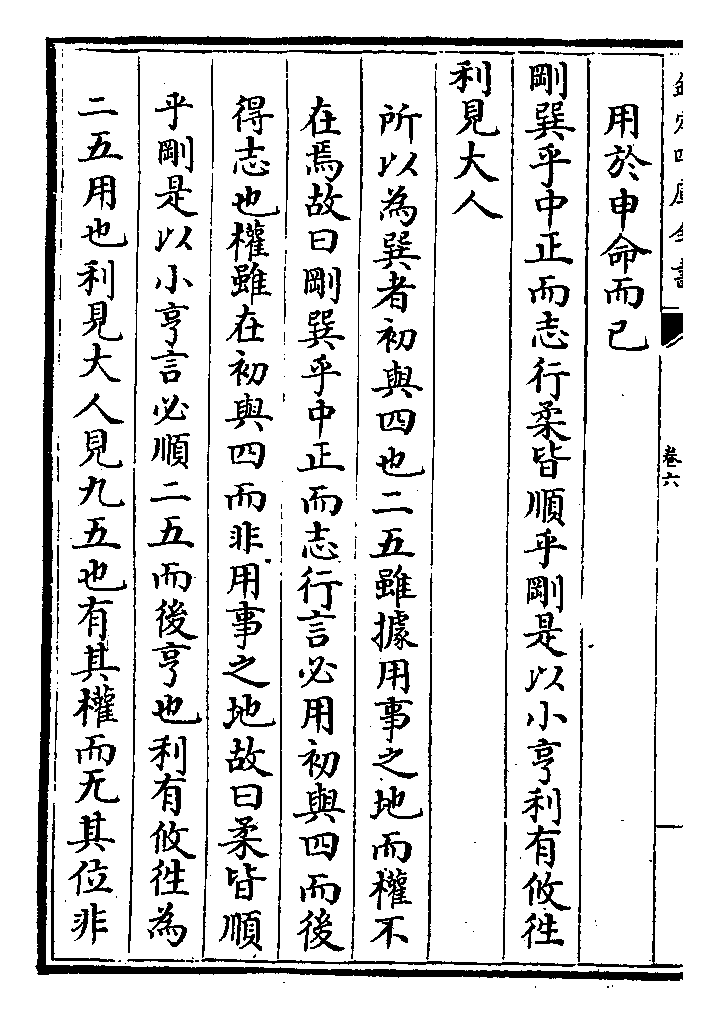 欽定四庫全書
卷六
用於申命而已
剛巽乎中正而志行柔皆順乎剛是以小亨利有攸徃
利見大人
所以為巽者初與四也二五雖據用事之地而權不
在焉故曰剛巽乎中正而志行言必用初與四而後
得志也權雖在初與四而非用事之地故曰柔皆順
乎剛是以小亨言必順二五而後亨也利有攸徃為
二五用也利見大人見九五也有其權而无其位非